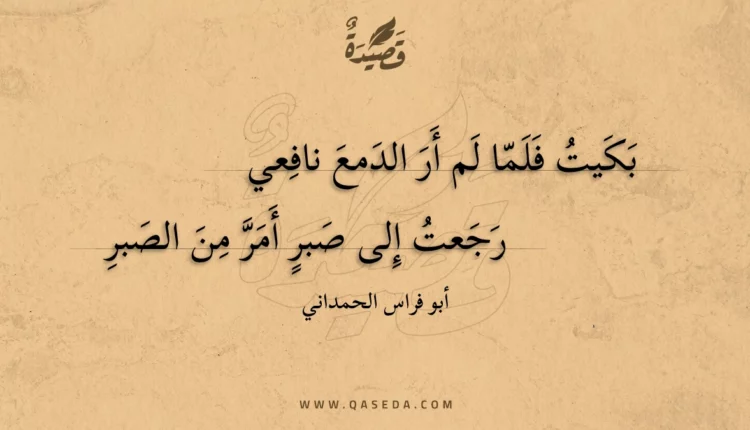 قَصِيدَةٌ
بَكَيتُ فَلَمّا لَم أَرَ الدَمعَ نافِعي
رَجَعتُ إِلى صَبرٍ أَمَرَّ مِنَ الصَبرِ
أبو فراس الحمداني
WWW.QASEDA.COM